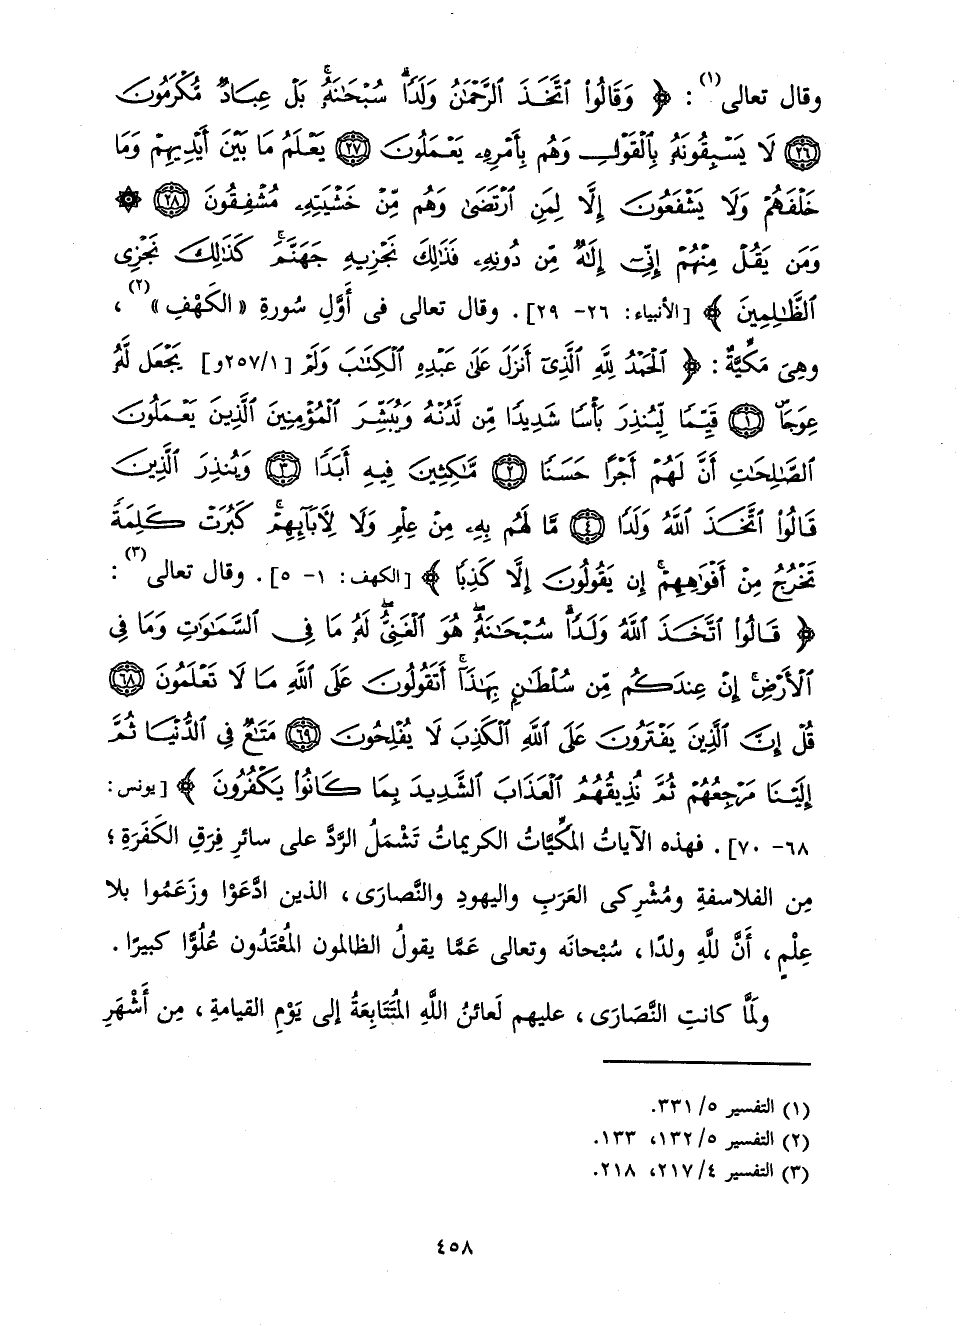 وقال تعالى(١) : ﴿ وَقَالُوا۟ ٱتَّخَذَ ٱلرَّحْمَٰنُ وَلَدًا ۗ سُبْحَٰنَهُۥ ۚ بَلْ عِبَادٌ مُّكْرَمُونَ
۝٢٦ لَا يَسْبِقُونَهُۥ بِٱلْقَوْلِ وَهُم بِأَمْرِهِۦ يَعْمَلُونَ ۝٢٧ يَعْلَمُ مَا بَيْنَ أَيْدِيهِمْ وَمَا
خَلْفَهُمْ وَلَا يَشْفَعُونَ إِلَّا لِمَنِ ٱرْتَضَىٰ وَهُم مِّنْ خَشْيَتِهِۦ مُشْفِقُونَ ۝٢٨ ۞
وَمَن يَقُلْ مِنْهُمْ إِنِّىٓ إِلَٰهٌ مِّن دُونِهِۦ فَذَٰلِكَ نَجْزِيهِ جَهَنَّمَ ۚ كَذَٰلِكَ نَجْزِى
ٱلظَّٰلِمِينَ ﴾ [الأنبياء: ٢٦- ٢٩]. وقال تعالى فى أَوَّلِ سُورةِ «الكَهْفِ»(٢)،
وهِىَ مَكِّيَّةٌ: ﴿ ٱلْحَمْدُ لِلَّهِ ٱلَّذِىٓ أَنزَلَ عَلَىٰ عَبْدِهِ ٱلْكِتَٰبَ وَلَمْ [٢٥٧/١و] يَجْعَل لَّهُۥ
عِوَجَا ۜ ۝١ قَيِّمًا لِّيُنذِرَ بَأْسًا شَدِيدًا مِّن لَّدُنْهُ وَيُبَشِّرَ ٱلْمُؤْمِنِينَ ٱلَّذِينَ يَعْمَلُونَ
ٱلصَّٰلِحَٰتِ أَنَّ لَهُمْ أَجْرًا حَسَنًا ۝٢ مَّٰكِثِينَ فِيهِ أَبَدًا ۝٣ وَيُنذِرَ ٱلَّذِينَ
قَالُوا۟ ٱتَّخَذَ ٱللَّهُ وَلَدًا ۝٤ مَّا لَهُم بِهِۦ مِنْ عِلْمٍ وَلَا لِءَابَآئِهِمْ ۚ كَبُرَتْ كَلِمَةً
تَخْرُجُ مِنْ أَفْوَٰهِهِمْ ۚ إِن يَقُولُونَ إِلَّا كَذِبًا ﴾ [الكهف: ١- ٥]. وقال تعالى(٣) :
﴿ قَالُوا۟ ٱتَّخَذَ ٱللَّهُ وَلَدًا ۗ سُبْحَٰنَهُۥ ۖ هُوَ ٱلْغَنِىُّ ۖ لَهُۥ مَا فِى ٱلسَّمَٰوَٰتِ وَمَا فِى
ٱلْأَرْضِ ۚ إِنْ عِندَكُم مِّن سُلْطَٰنٍۭ بِهَٰذَآ ۚ أَتَقُولُونَ عَلَى ٱللَّهِ مَا لَا تَعْلَمُونَ ۝٦٨
قُلْ إِنَّ ٱلَّذِينَ يَفْتَرُونَ عَلَى ٱللَّهِ ٱلْكَذِبَ لَا يُفْلِحُونَ ۝٦٩ مَتَٰعٌ فِى ٱلدُّنْيَا ثُمَّ
إِلَيْنَا مَرْجِعُهُمْ ثُمَّ نُذِيقُهُمُ ٱلْعَذَابَ ٱلشَّدِيدَ بِمَا كَانُوا۟ يَكْفُرُونَ ﴾ [يونس:
٦٨- ٧٠]. فهذه الآياتُ المكِّيَّاتُ الكريماتُ تَشْمَلُ الرَّدَّ على سائرِ فِرَقِ الكَفَرَةِ؛
مِن الفلاسفةِ ومُشْرِكى العَرَبِ واليهودِ والنَّصارَى، الذين ادَّعَوْا وزَعَمُوا بلا
عِلْمٍ، أَنَّ للَّهِ ولدًا، سُبْحانَه وتعالى عَمَّا يقولُ الظالمون المُعْتَدُون عُلُوًّا كبيرًا.
ولمَّا كانتِ النَّصَارَى، عليهم لَعائنُ اللَّهِ المُتَتابِعَةُ إلى يَوْمِ القيامةِ، مِن أَشْهَرِ
(١) التفسير ٥/ ٣٣١.
(٢) التفسير ٥/ ١٣٢، ١٣٣.
(٣) التفسير ٤/ ٢١٧، ٢١٨.
٤٥٨